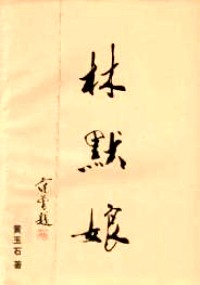 林默娘
黄玉石 著